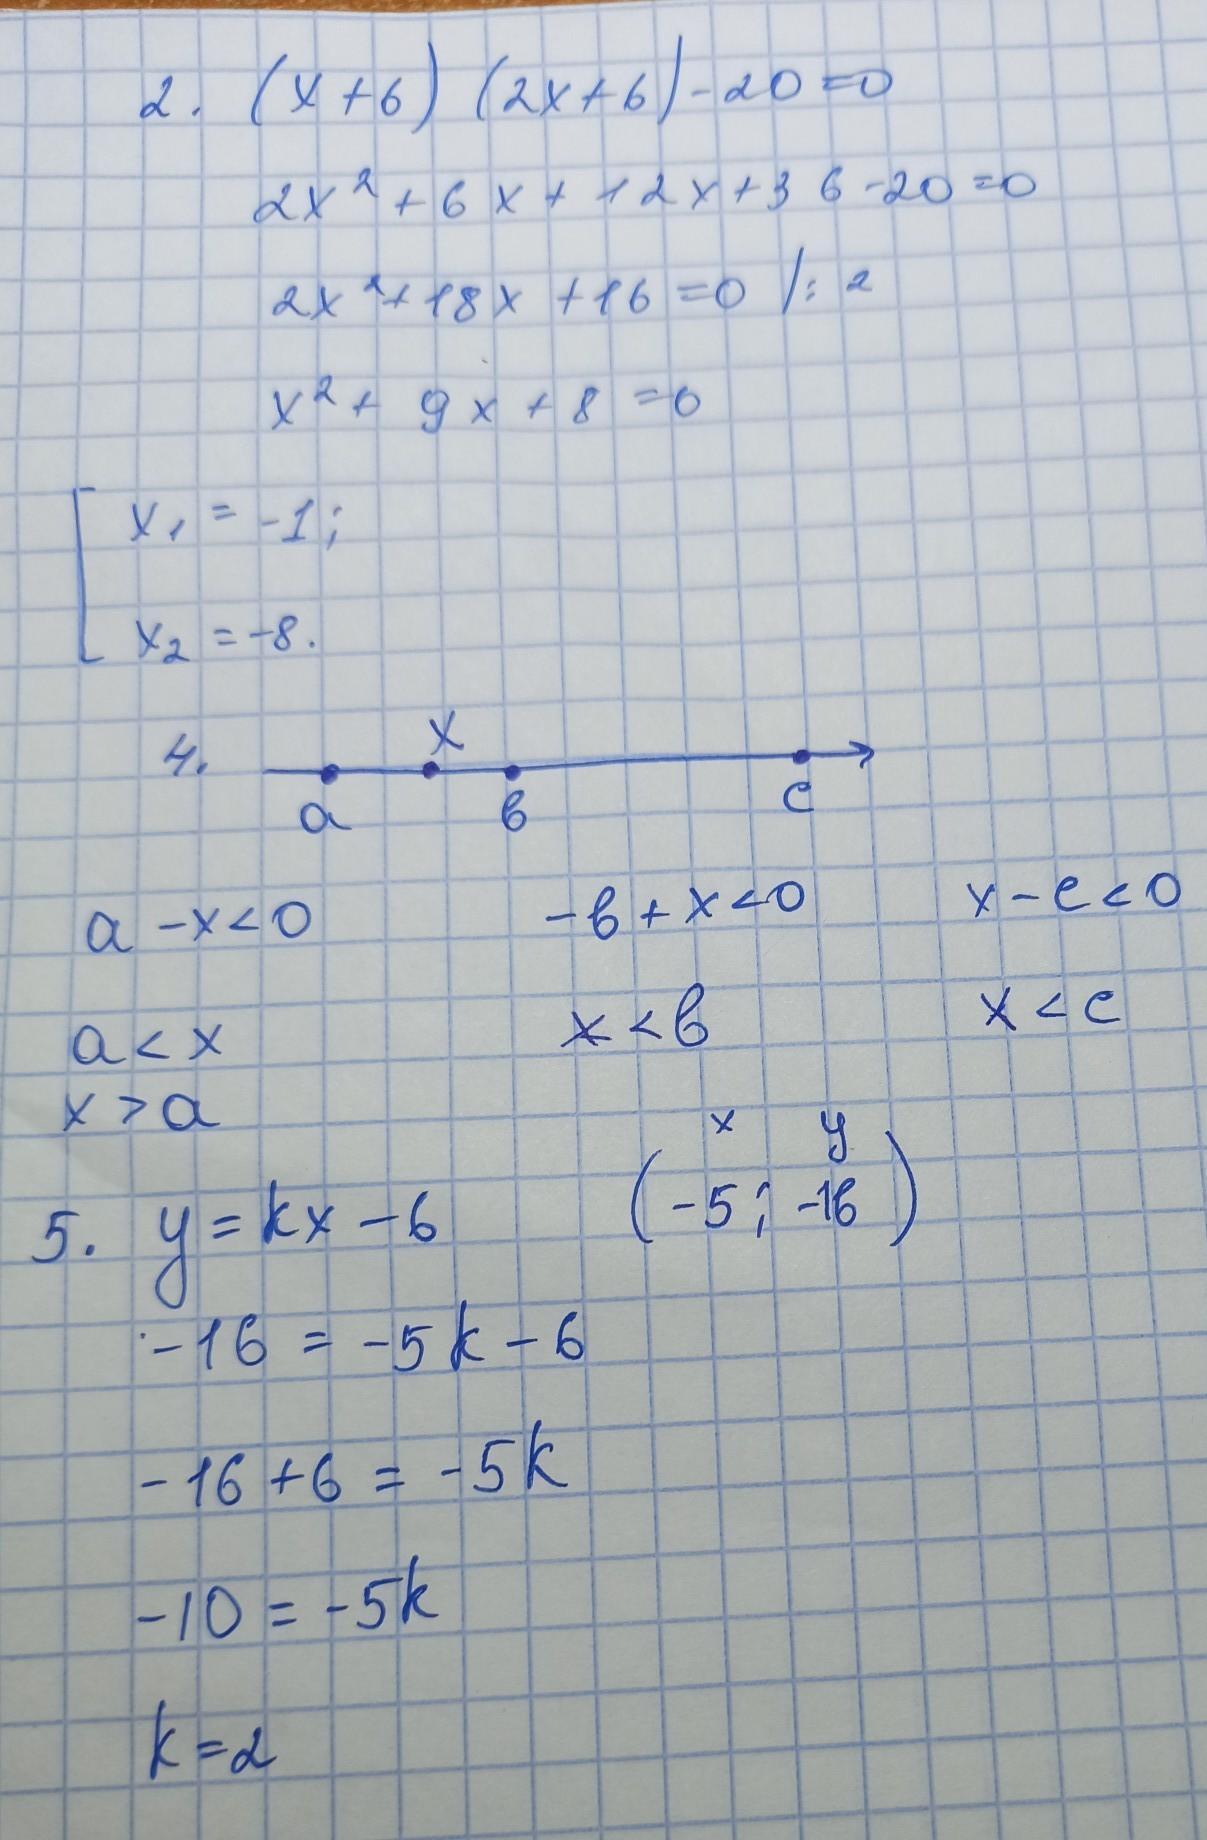 2. (x+6) (2x+6)-20=0
2x²+6x+12x+36-20=0
2x²+18x+16=0 /:2
x²+9x+8=0
x₁=-1;
x₂=-8.
4. x
a в c
a-x<0 -в+x<0 x-c<0
a<x x<в x<c
x>a
x y
5. y=kx-6 (-5; -16)
-16=-5k-6
-16+6=-5k
-10=-5k
k=2